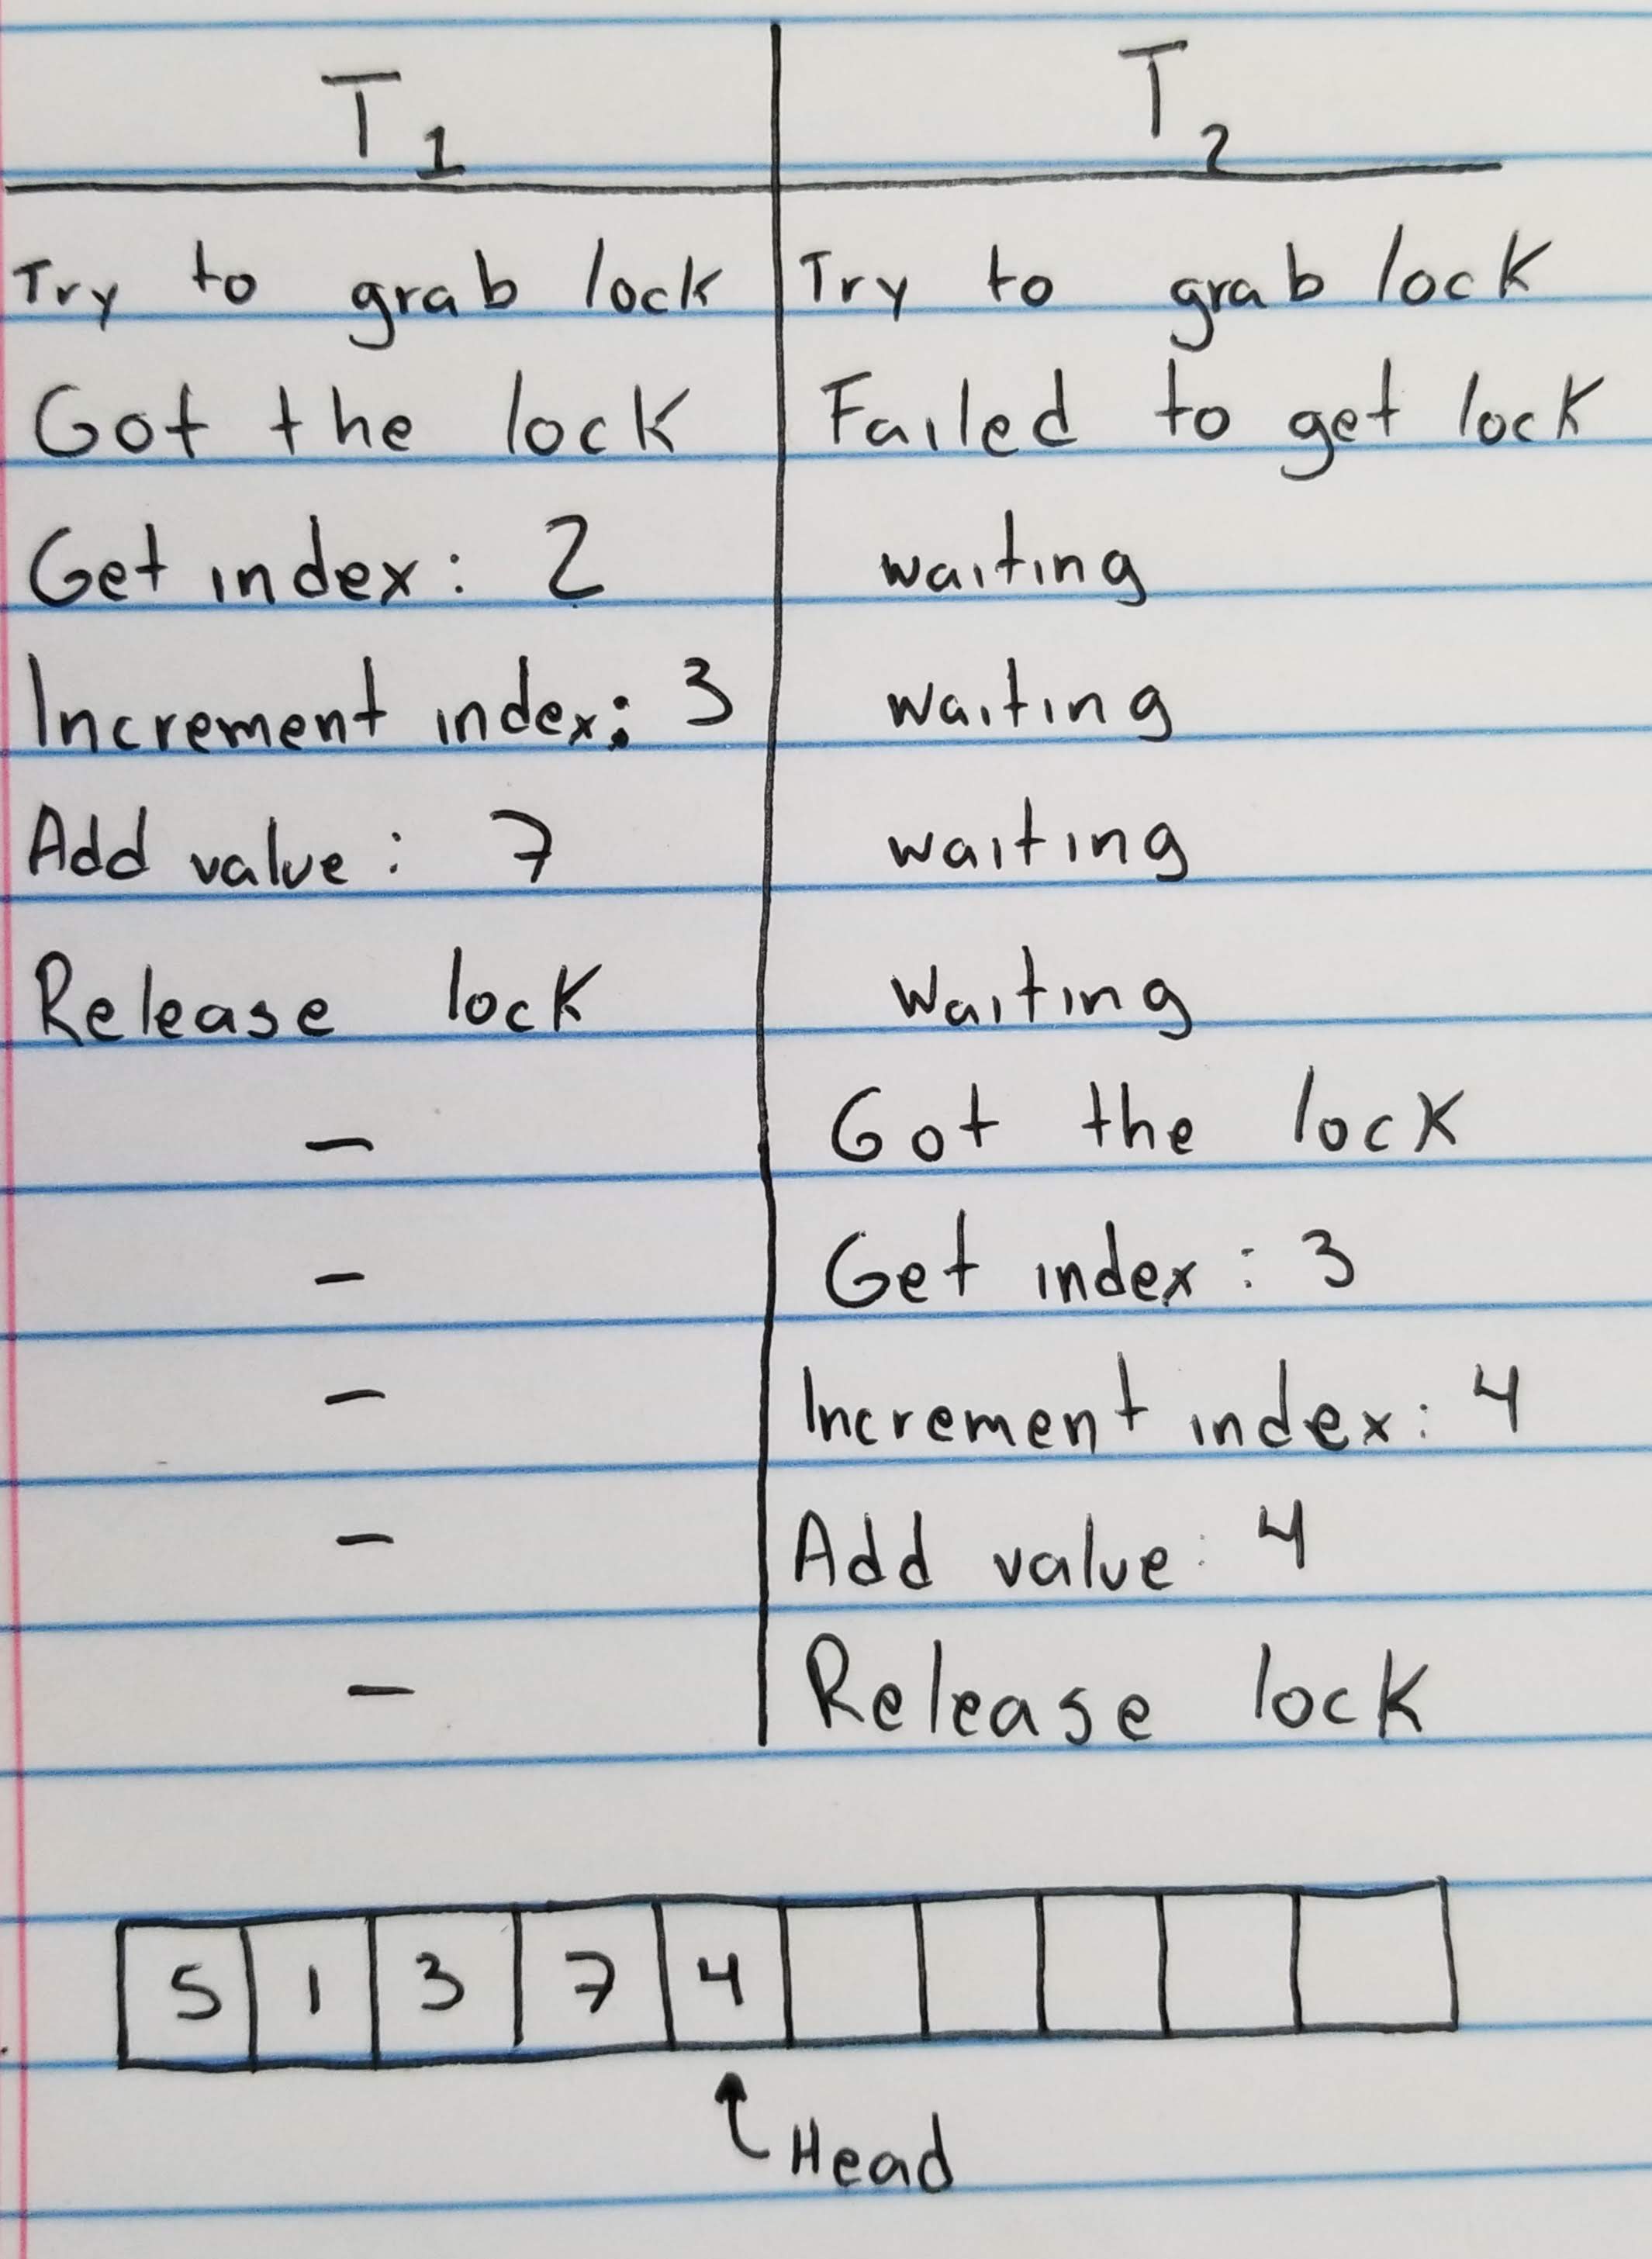 T1 T2
Try to grab lock Try to grab lock
Got the lock Failed to get lock
Get index: 2 waiting
Increment index: 3 waiting
Add value: 7 waiting
Release lock waiting
- Got the lock
- Get index: 3
- Increment index: 4
- Add value: 4
- Release lock
5 1 3 7 4
Head